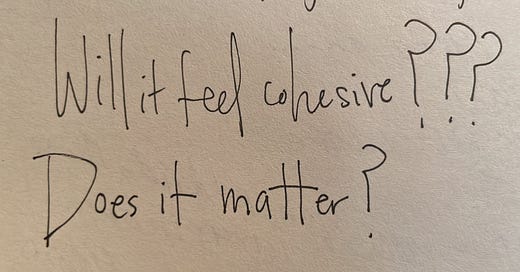 Will it feel cohesive???
Does it matter?